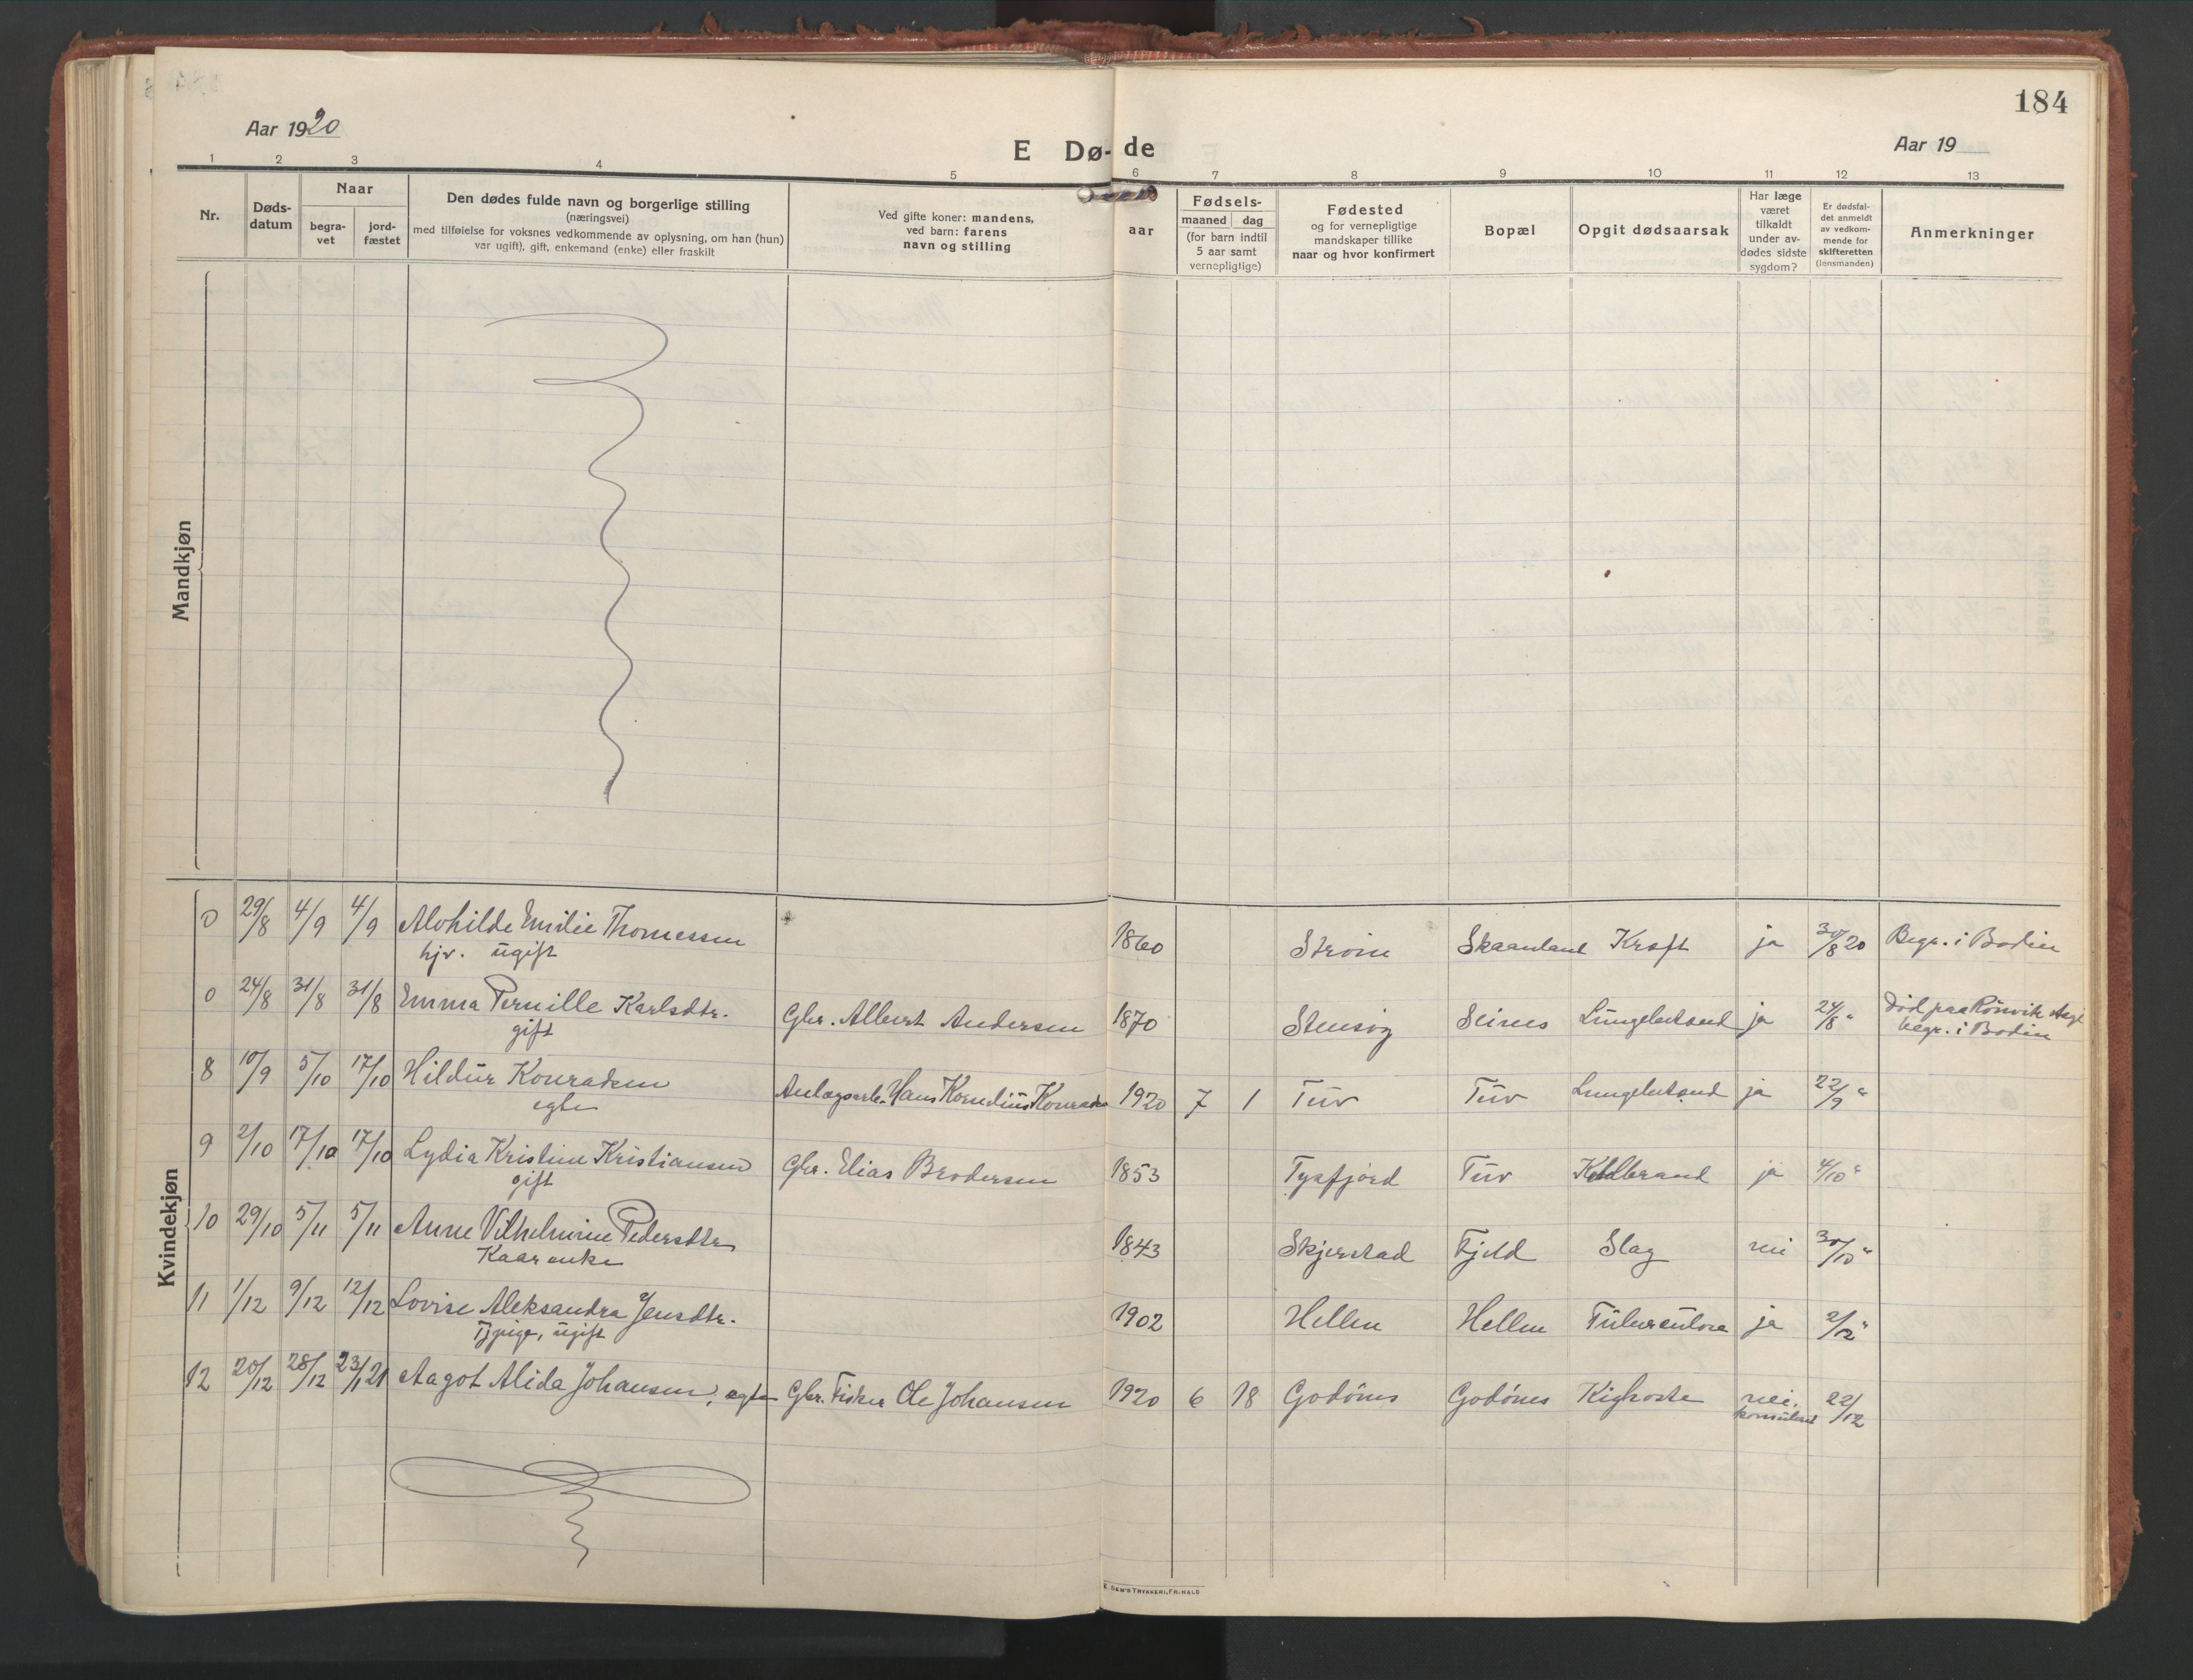 184
Aar 1920
E Dø-de
Aar 19
1 2 3 4 5 6 7 8 9 10 11 12 13
Nr.
Døds-
datum
Naar
begra-
vet
jord-
fæstet
Den dødes fulde navn og borgerlige stilling
(næringsvei)
med tilføielse for voksnes vedkommende av oplysning, om han (hun)
var ugift), gift, enkemand (enke) eller fraskilt
Ved gifte koner: mandens,
ved barn: farens
navn og stilling
aar
Fødsels-
maaned dag
(for barn indtil
5 aar samt
vernepligtige)
Fødested
og for vernepligtige
mandskaper tillike
naar og hvor konfirmert
Bopæl
Opgit dødsaarsak
Har læge
været
tilkaldt
under av-
dødes sidste
sygdom?
Er dødsfal-
det anmeldt
av vedkom-
mende for
skifteretten
(lensmanden)
Anmerkninger
Mandkjøn
Kvindekjøn
0 29/8 4/9 4/9 Alvhilde Emilie Thomessen 1860 Strøm Skaanland Kræft ja 30/8 20 Begr. i Bodin
hjv. ugift
0 24/8 31/8 31/8 Emma Pernille Karlsdtr. Gbr. Albert Andersen 1870 Stensøg Seines ja 24/8 " Død paa Rønvik Asyl
gift
begr. i Bodin
8 10/9 5/10 17/10 Hildur Konradsen Hans Kornelius 1920 7 1 Tuv Tuv ja 22/9 "
egte
9 2/10 17/10 17/10 Lydia Kristine Kristiansen Gbr. Elias Brodersen 1853 Tysfjord Tuv Koldbrand ja 4/10 "
gift
10 29/10 5/11 5/11 Anne Vilhelmine Pedersdtr 1843 Skjerstad Fjeld Slag nei 30/10 "
Kaarenke
11 1/12 9/12 12/12 Lovise Aleksandra Jensdtr. 1902 Hellen Hellen Tuberculose ja 2/12 "
Tjpige, ugift
12 20/12 28/12 23/1 21 Aagot Alida Johansen, egte Gbr. Fisker Ole Johansen 1920 6 18 Godønes Godønes Kighoste nei, 22/12
konsulert
E. SEM'S TRYKKERI, FR.HALD